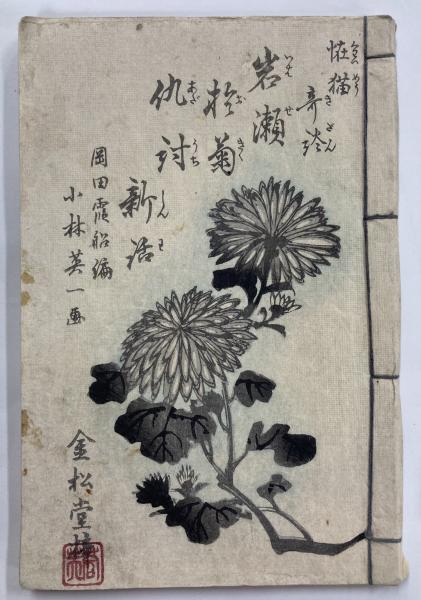 恠猫
竒談
岩瀬
扵菊
仇討
新話
岡田霞船編
小林英一画
金松堂梓